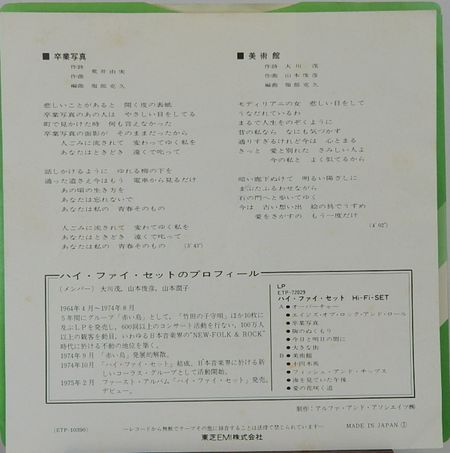 ■ 卒業写真
作詩
作曲 荒井由実
編曲 服部克久
悲しいことがあると 開く皮の表紙
卒業写真のあの人は やさしい目をしてる
町で見かけた時 何も言えなかった
卒業写真の面影が そのままだったから
人ごみに流されて 変わってゆく私を
あなたはときどき 遠くで叱って
話しかけるように ゆれる柳の下を
通った道さえ今はもう 電車から見るだけ
あの頃の生き方を
あなたは忘れないで
あなたは私の 青春そのもの
人ごみに流されて 変わってゆく私を
あなたはときどき 遠くで叱って
あなたは私の 青春そのもの
■ 美術館
作詩 大川 茂
作曲 山本俊彦
編曲 服部克久
モディリアニの女 悲しい目をして
うなだれているわ
まるで人生をのぞくように
昔の私なら なにも気づかず
通りすぎるけれど今は 心とまる
きっと 愛と別れた さみしい人よ
今の私と よく似てるから
暗い廊下ぬけて 明るい陽ざしに
まぶたふるわせながら
石の門へと歩いてゆく
今は 古い想い出 絵の具でうすめ
愛をさがすの もう一度だけ
ハイ・ファイ・セットのプロフィール
(メンバー) 大川茂、山本俊彦、山本潤子
1964年4月〜1974年8月
5年間にグループ「赤い鳥」として、「竹田の子守唄」ほか10枚に
及ぶLPを発売し、600回以上のコンサート活動を行ない、100万人
以上の観客を動員、いわゆる日本音楽界の"NEW-FOLK & ROCK"
時代に於ける不動の地位を築く。
1974年9月 「赤い鳥」発展的解散。
1974年10月 「ハイ・ファイ・セット」結成、日本音楽界に於ける新
しいコーラス・グループとして活動開始。
1975年2月 ファースト・アルバム「ハイ・ファイ・セット」発売、
デビュー。
LP
ETP-72029
ハイ・ファイ・セット Hi-Fi-SET
A ●オーバーチャー
●エイジズ・オブ・ロック・アンド・ロール
●卒業写真
●胸のぬくもり
●今日と明日の間に
●大きな街
B ●美術館
●十四本
●フィッシュ・アンド・チップス
●海を見ていた午後
●愛の花咲く道
制作:アルファ・アンド・アソシエイツ㈱
(ETP-10396)
―レコードから無断でテープその他に録音することは法律で禁じられています―
MADE IN JAPAN
東芝EMI株式会社